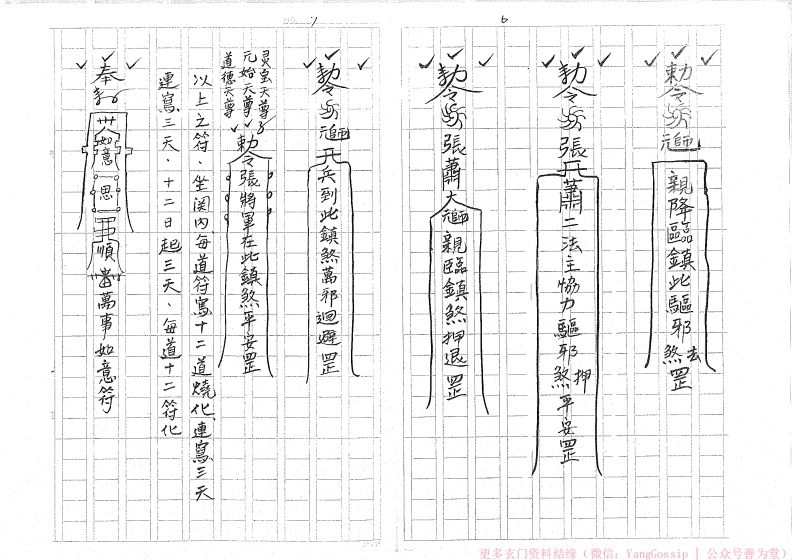 6
勅令 元帥 親降臨鎮此驅邪煞去罡
勅令 張 蕭二法主協力驅邪押煞平安罡
勅令 張蕭大元帥親臨鎮煞押退罡
7
勅令 元帥 兵到此鎮煞萬邪迴避罡
灵宝天尊
元始天尊
道德天尊
勅令張將軍在此鎮煞平安罡
以上之符、坐関内、每道符寫十二道燒化、連寫三天
連寫三天、十二日起三天、每道十二符化
奉 如意 思 順 萬事如意符
更多玄门资料结缘（微信：YangGossip | 公众号善为堂）